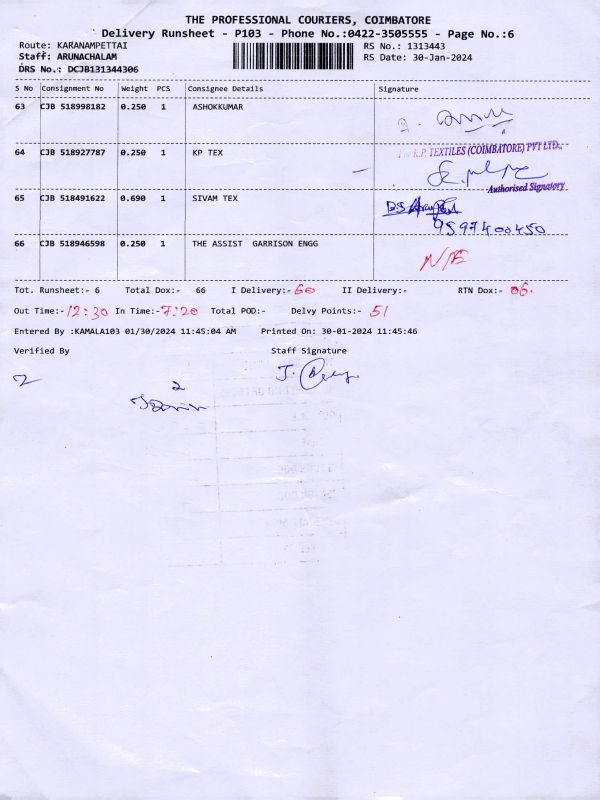 THE PROFESSIONAL COURIERS, COIMBATORE
Delivery Runsheet - P103 - Phone No.:0422-3505555 - Page No.:6
Route: KARANAMPETTAI RS No.: 1313443
Staff: ARUNACHALAM RS Date: 30-Jan-2024
DRS No.: DCJB131344306
S No Consignment No Weight PCS Consignee Details Signature
63 CJB 518998182 0.250 1 ASHOKKUMAR
64 CJB 518927787 0.250 1 KP TEX
For K.P. TEXTILES (COIMBATORE) PVT LTD.,
Authorised Signatory
65 CJB 518491622 0.690 1 SIVAM TEX
9597400450
66 CJB 518946598 0.250 1 THE ASSIST GARRISON ENGG N/E
Tot. Runsheet:- 6 Total Dox:- 66 I Delivery:- 60 II Delivery:- RTN Dox:- 06.
Out Time:- 12:30 In Time:- 7:20 Total POD:- Delvy Points:- 51
Entered By :KAMALA103 01/30/2024 11:45:04 AM Printed On: 30-01-2024 11:45:46
Verified By Staff Signature